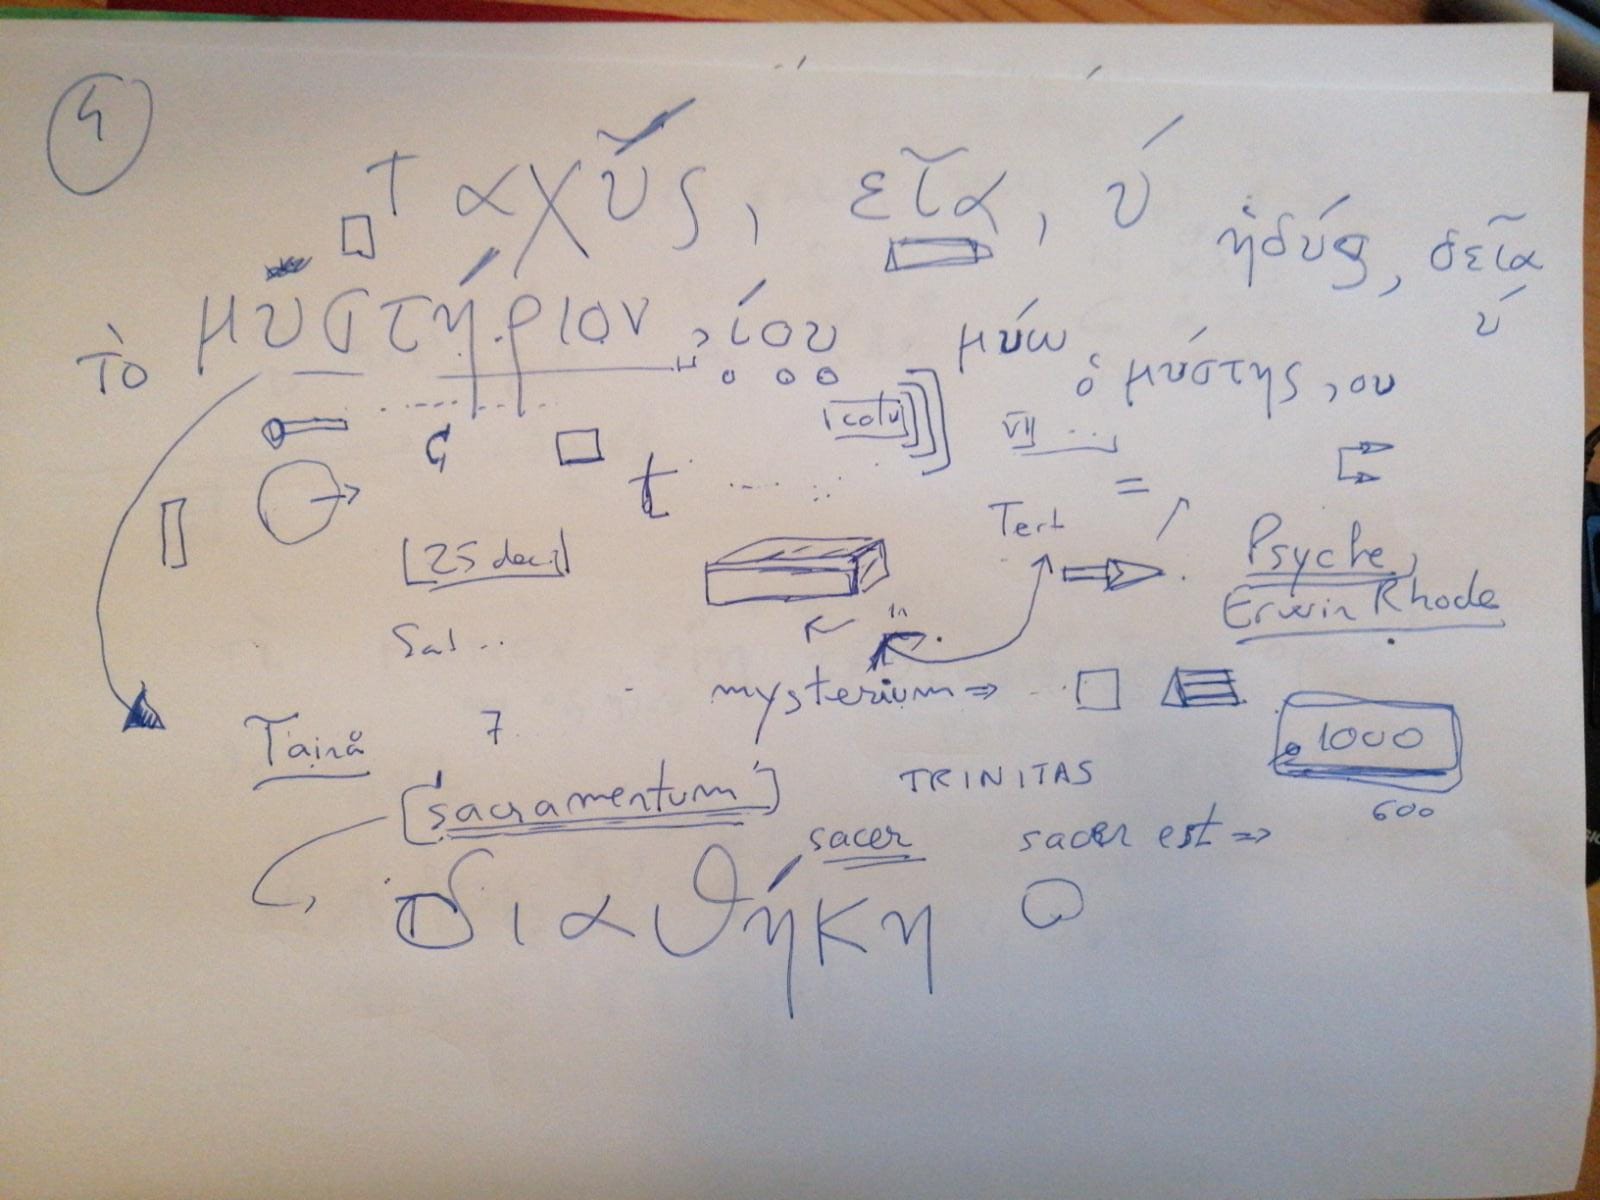 4
ταχύς, εῖα, ύ
ἡδύς, δεῖα
ύ
τὸ μυστήριον, ίου
μύω
ὁ μύστης, ου
VII ...
=
Tert
[25 dec.]
Psyche,
Erwin Rhode
Sal...
in
mysterium ⇒
1000
600
Taină
7
[sacramentum]
TRINITAS
sacer
sacer est ⇒
διαθήκη